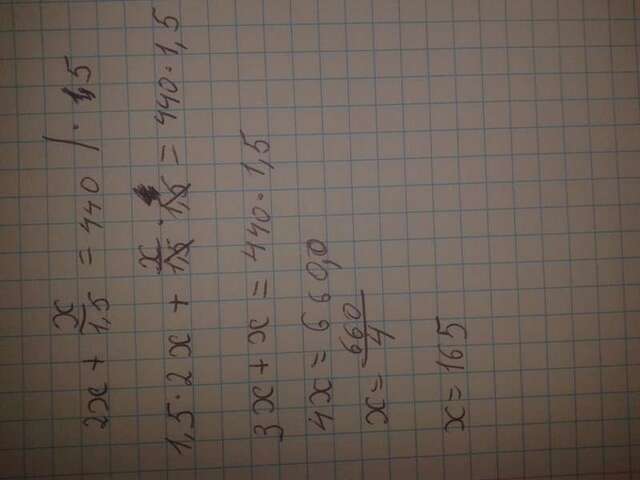 2x + x/1,5 = 440 | · 1,5
1,5 · 2x + x/1,5 · 1,5 = 440 · 1,5
3x + x = 440 · 1,5
4x = 660,0
x = 660/4
x = 165